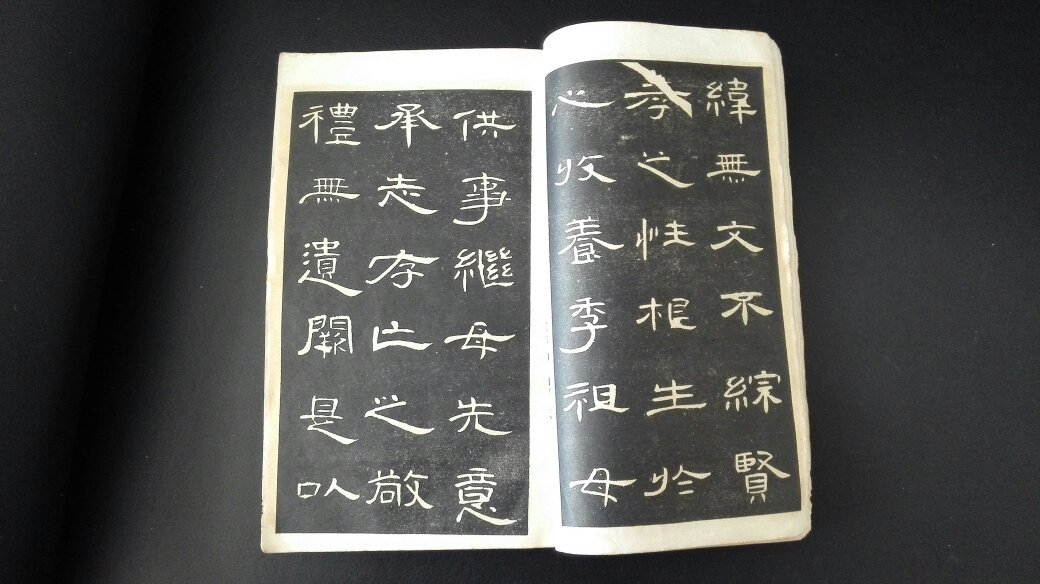 緯無文不綜賢
孝之性根生於
心收養季祖母
供事繼母先意
承志存亡之敬
禮無遺闕是以